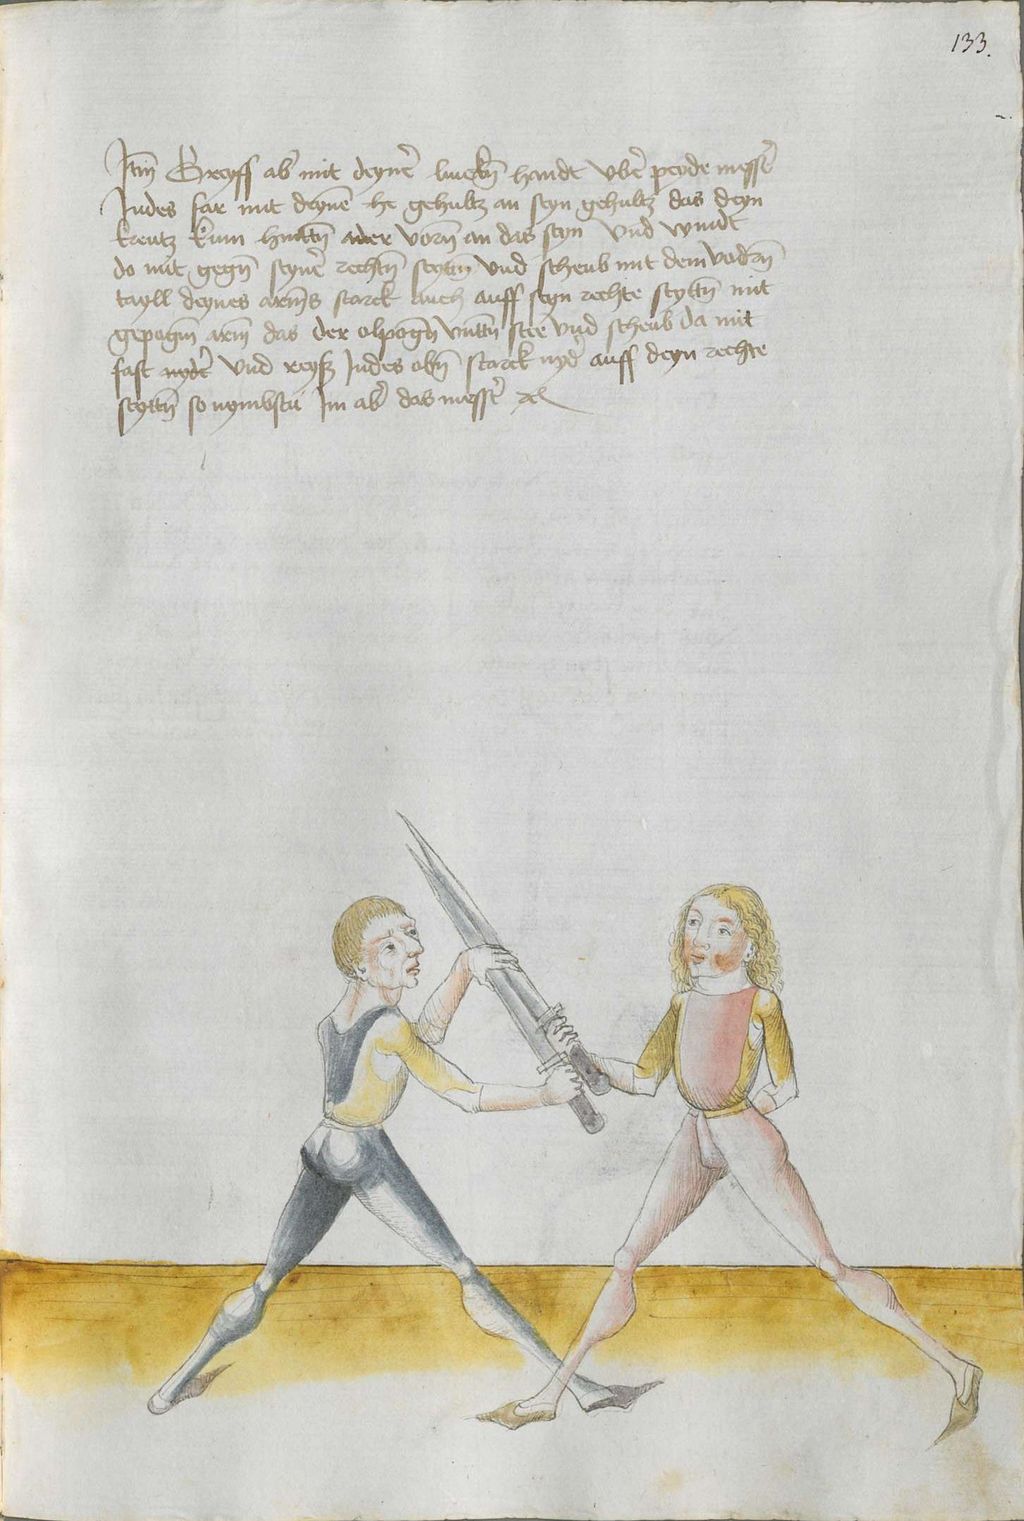 133.
Itm̄ Greyff ab' mit deyner' linckn̄ handt vbe' peyde messe'
Indes far mit deynē he gehultz an seyn gehultz das deyn
kreutz kum hinttn̄ ader vorn̄ an das seyn vnd windt
do mit gegn̄ seyne' rechtn̄ seyttn̄ vnd scheub mit dem vodrn̄
tayll deynes arm̄s starck auch auff seyn rechte seyttn̄ mit
gepogn̄ arm̄ das der elpogn̄ vnttn̄ stee vnd scheub da mit
fast nyde' vnd reyß Indes obn̄ starck nyd' auff deyn rechte
seyttn̄ so nymbstu im ab' das messe'